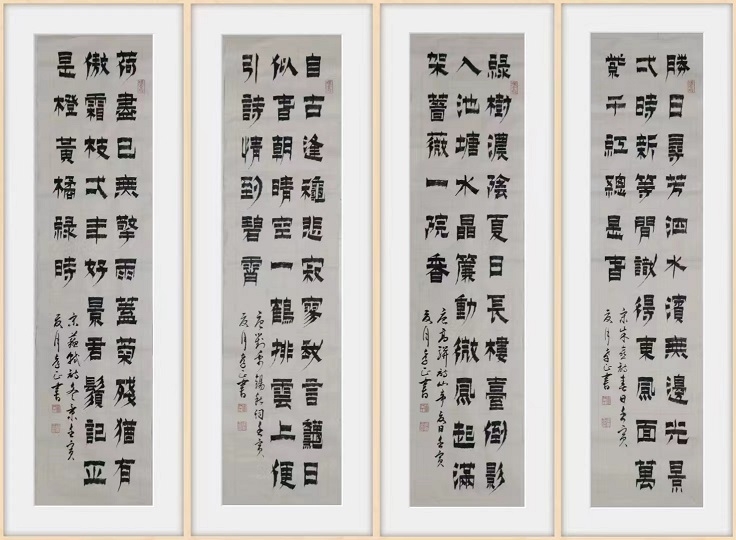 勝日尋芳泗水濱無邊光景
弌時新等閒識得東風面萬
紫千紅總是春
宋朱熹詩春日壬寅
夏月正書
綠樹濃陰夏日長樓臺倒影
入池塘水晶簾動微風起滿
架薔薇一院香
唐高駢詩山亭夏日壬寅
夏月正書
自古逢穐悲寂寥我言龝日
似春朝晴空一鶴排雲上便
引詩情到碧霄
唐劉禹錫秋詞壬寅
夏月正書
荷盡已無擎雨蓋菊殘猶有
傲霜枝弌年好景君須記正
是橙黃橘綠時
宋蘇軾詩冬景壬寅
夏月正書